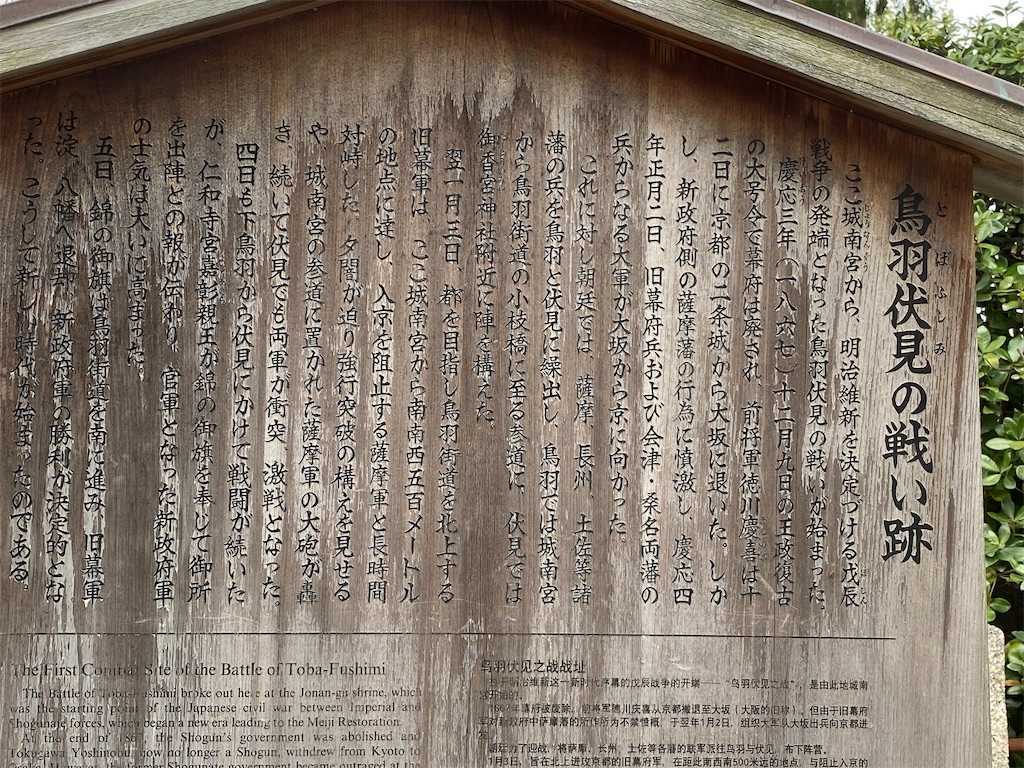 鳥羽伏見の戦い跡
とばふしみ
ここ城南宮から、明治維新を決定づける戊辰
戦争の発端となった鳥羽伏見の戦いが始まった。
慶応三年（一八六七）十二月九日の王政復古
の大号令で幕府は廃され、前将軍徳川慶喜は十
二日に京都の二条城から大坂に退いた。しか
し、新政府側の薩摩藩の行為に憤激し、慶応四
年正月二日、旧幕府兵および会津・桑名両藩の
兵からなる大軍が大坂から京に向かった
これに対し朝廷では、薩摩、長州、土佐等諸
藩の兵を鳥羽と伏見に繰出し、鳥羽では城南宮
から鳥羽街道の小枝橋に至る参道に、伏見では
御香宮神社附近に陣を構えた
翌一月三日、都を目指し鳥羽街道を北上する
旧幕軍は、ここ城南宮から南南西五百メートル
の地点に達し、入京を阻止する薩摩軍と長時間
対峙した。夕闇が迫り強行突破の構えを見せる
や、城南宮の参道に置かれた薩摩軍の大砲が轟
き、続いて伏見でも両軍が衝突、激戦となった。
四日も下鳥羽から伏見にかけて戦闘が続いた
が、仁和寺宮嘉彰親王が錦の御旗を奉じて御所
を出陣との報が伝わり、官軍となった新政府軍
の士気は大いに高まった
五日、錦の御旗は鳥羽街道を南と進み、旧幕軍
は淀、八幡へ退却、新政府軍の勝利が決定的とな
った。こうして新しい時代が始まったのである。
The First Combat Site of the Battle of Toba-Fushimi
The Battle of Toba-Fushimi broke out here at the Jonan-gu shrine, which
was the starting point of the Japanese civil war between Imperial and
Shogunate forces, which began a new era leading to the Meiji Restoration.
At the end of 1867, the Shogun's government was abolished and
Tokugawa Yoshinobu, now no longer a Shogun, withdrew from Kyoto to
the former Shogunate government became outraged at the
鸟羽伏见之战战址
明治维新这一新时代序幕的戊辰战争的开端——“鸟羽伏见之战”，是由此地城南
开始的。
1867年幕府被废除，前将军德川庆喜从京都撤退至大坂（大阪的旧称），但由于旧幕府
对新政府中萨摩藩的所作所为不禁愤慨，于翌年1月2日，组织大军从大坂出兵向京都进
朝廷为了迎战，将萨摩、长州、土佐等各藩的联军派往鸟羽与伏见，布下阵营。
1月3日，旨在北上进攻京都的旧幕府军，在距此南西南500米远的地点，与阻止入京的